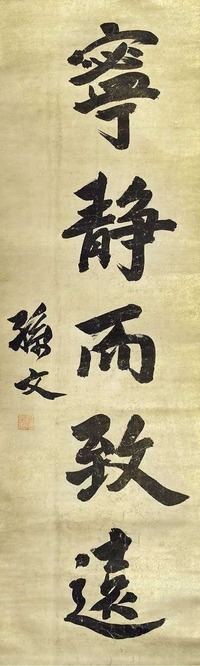 寧静而致遠
孫文